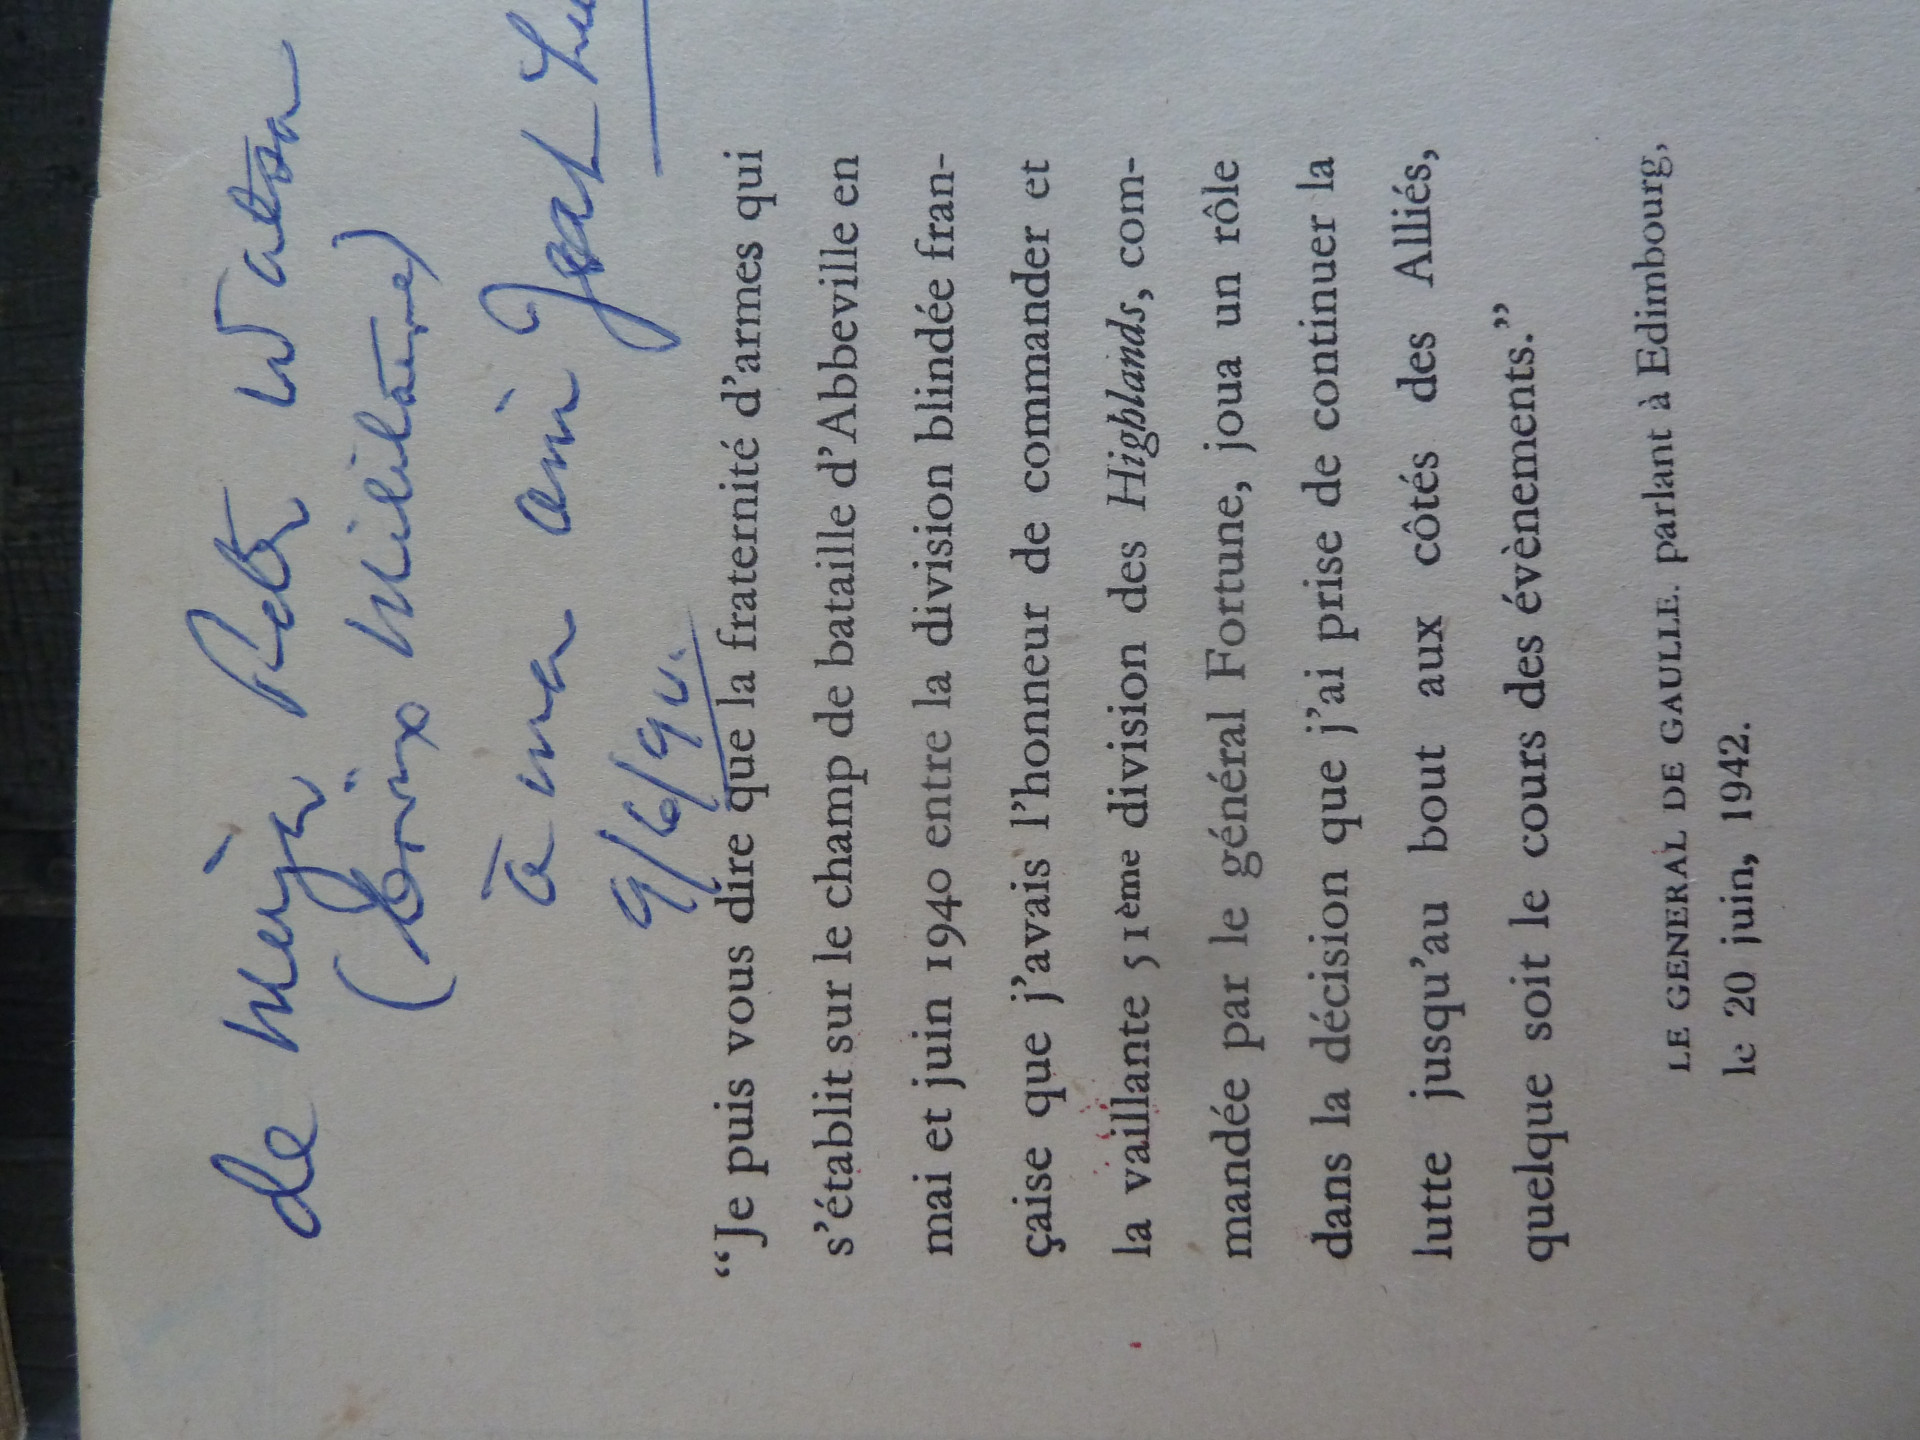 de Major Peter Watson
(Croix Militaire)
à mon ami Jean
9/6/90.
“Je puis vous dire que la fraternité d’armes qui
s’établit sur le champ de bataille d’Abbeville en
mai et juin 1940 entre la division blindée fran-
çaise que j’avais l’honneur de commander et
la vaillante 51ème division des Highlands, com-
mandée par le général Fortune, joua un rôle
dans la décision que j’ai prise de continuer la
lutte jusqu’au bout aux côtés des Alliés,
quelque soit le cours des évènements.”
LE GENERAL DE GAULLE. parlant à Edimbourg,
le 20 juin, 1942.